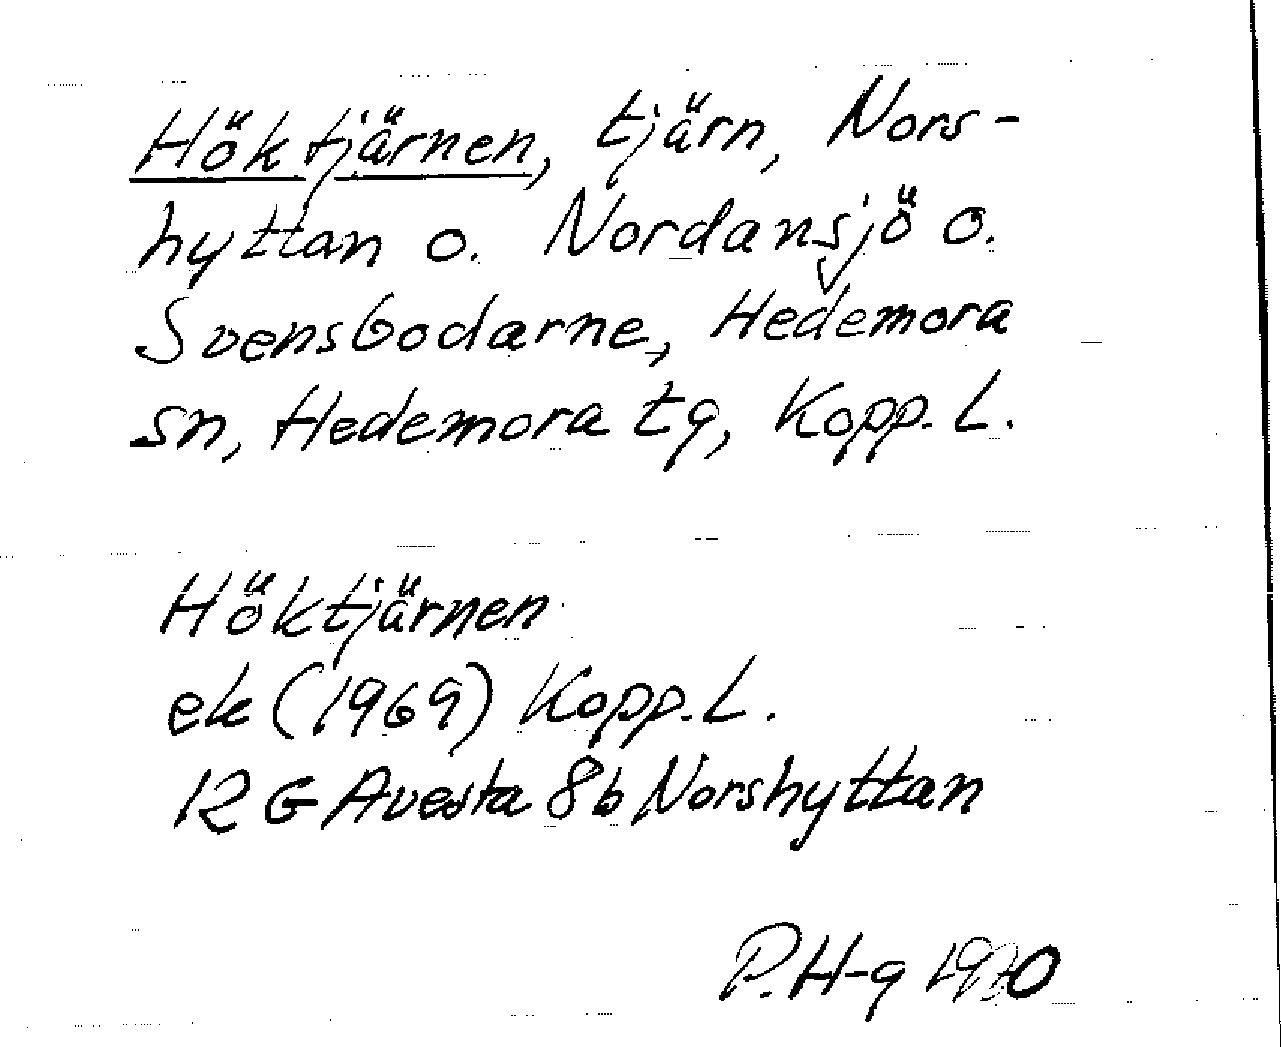 Höktjärnen, tjärn, Nors-
hyttan o. Nordansjö o.
Svensbodarne, Hedemora
sn, Hedemora tg, Kopp. L.
Höktjärnen
ek (1969) Kopp. L.
12 G Avesta 8b Norshyttan
P. H-g